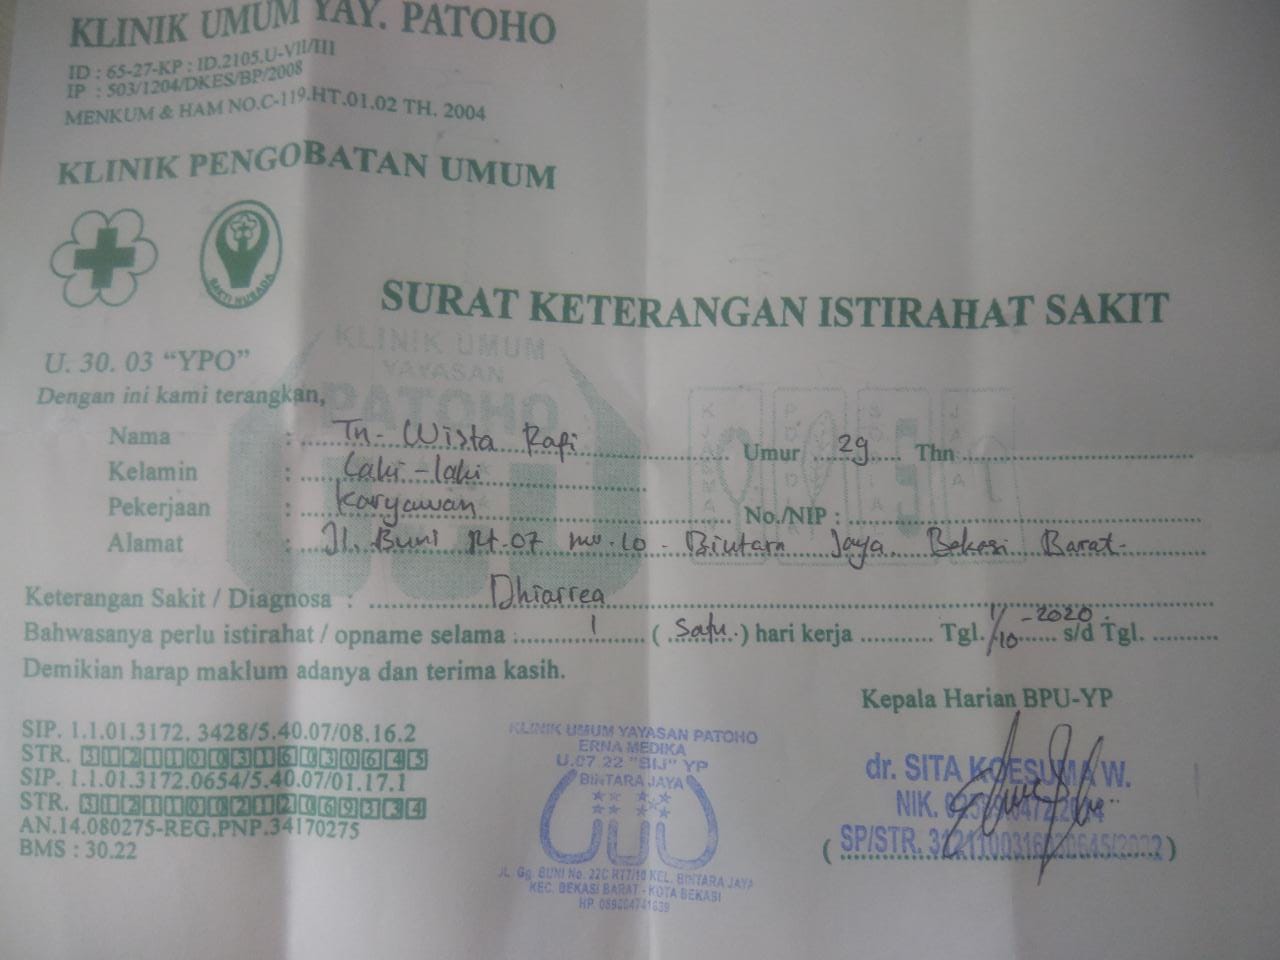 KLINIK UMUM YAY. PATOHO
ID : 65-27-KP : ID.2105.U-VII/III
IP : 503/1204/DKES/BP/2008
MENKUM & HAM NO.C-119.HT.01.02 TH. 2004
KLINIK PENGOBATAN UMUM
BAKTI HUSADA
SURAT KETERANGAN ISTIRAHAT SAKIT
KLINIK UMUM
YAYASAN
PATOHO
U. 30. 03 “YPO”
Dengan ini kami terangkan,
Nama : Tn. Wista Rafi Umur 29 Thn
Kelamin : Laki-laki
Pekerjaan : Karyawan No./NIP :
Alamat : Jl. Buni Rt.07 no.10 - Bintara Jaya Bekasi Barat.
Keterangan Sakit / Diagnosa : Dhiarrea
Bahwasanya perlu istirahat / opname selama : 1 ( Satu ) hari kerja Tgl. 1/10 -2020 s/d Tgl.
Demikian harap maklum adanya dan terima kasih.
Kepala Harian BPU-YP
SIP. 1.1.01.3172. 3428/5.40.07/08.16.2
STR. 3121100316030645
SIP. 1.1.01.3172.0654/5.40.07/01.17.1
STR. 3121100212069334
AN.14.080275-REG.PNP.34170275
BMS : 30.22
KLINIK UMUM YAYASAN PATOHO
ERNA MEDIKA
U.07.22 "BIJ" YP
BINTARA JAYA
JL. Gg. BUNI No. 22C RT7/10 KEL. BINTARA JAYA
KEC. BEKASI BARAT - KOTA BEKASI
HP.
dr. SITA KOESUMA W.
NIK.
SP/STR.